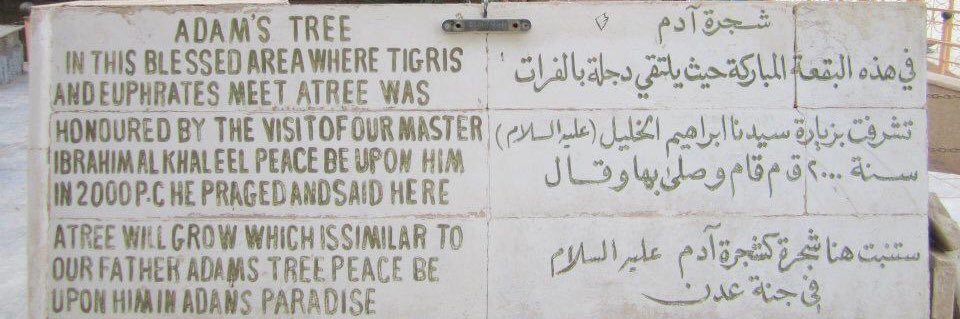 ADAM'S TREE
IN THIS BLESSED AREA WHERE TIGRIS
AND EUPHRATES MEET ATREE WAS
HONOURED BY THE VISIT OF OUR MASTER
IBRAHIM AL KHALEEL PEACE BE UPON HIM
IN 2000 P.C HE PRAGED AND SAID HERE
ATREE WILL GROW WHICH IS SIMILAR TO
OUR FATHER ADAMS TREE PEACE BE
UPON HIM IN ADANS PARADISE
شجرة آدم
في هذه البقعة المباركة حيث يلتقي دجلة بالفرات
تشرفت بزيارة سيدنا ابراهيم الخليل (عليه السلام)
سنة ٢٠٠٠ ق م قام وصلى بها وقال
ستنبت هنا شجرة كشجرة آدم عليه السلام
في جنة عدن